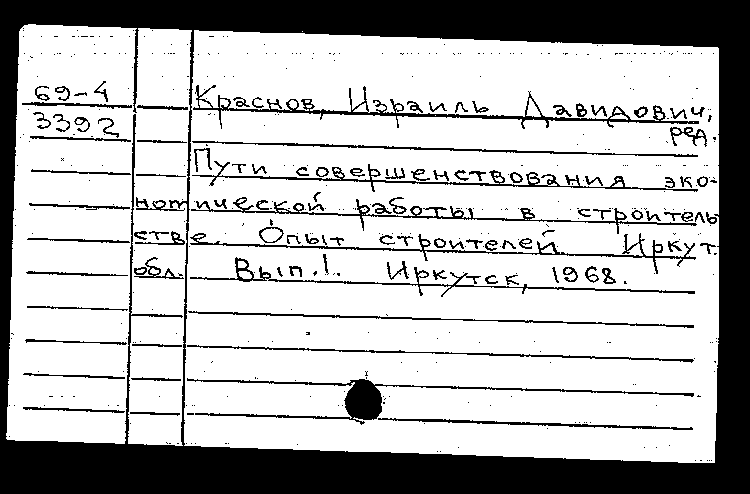 69-4 Краснов, Израиль Давидович,
3392 ред.
Пути совершенствования эко-
номической работы в строитель
стве. Опыт строителей Иркут.
обл. Вып.1. Иркутск, 1968.